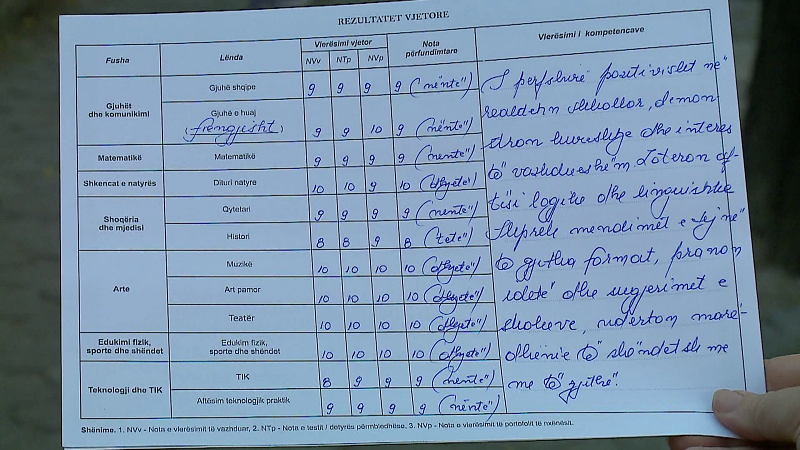 REZULTATET VJETORE
Fusha Lënda Vlerësimi vjetor Nota përfundimtare Vlerësimi i kompetencave
NVv NTp NVp
Gjuhët dhe komunikimi Gjuhë shqipe 9 9 9 9 (nëntë)
Gjuhë e huaj (frëngjisht) 9 9 10 9 (nëntë)
Matematikë Matematikë 9 9 9 9 (nëntë)
Shkencat e natyrës Dituri natyre 10 10 9 10 (dhjetë)
Shoqëria dhe mjedisi Qytetari 9 9 9 9 (nëntë)
Histori 8 8 9 8 (tetë)
Arte Muzikë 10 10 10 10 (dhjetë)
Art pamor 10 10 10 10 (dhjetë)
Teatër 10 10 10 10 (dhjetë)
Edukimi fizik, sporte dhe shëndet Edukim fizik, sporte dhe shëndet 10 10 10 10 (dhjetë)
Teknologji dhe TIK TIK 8 9 9 9 (nëntë)
Aftësim teknologjik praktik 9 9 9 9 (nëntë)
I përfshirë pozitivisht në
shkollor, demon
dhe interes
të vazhdueshëm. af
tësi logjike dhe linguistike
Shpreh mendimet e tij në
të gjitha format, pranon
idetë dhe sugjerimet e
shokëve, ndërton marë-
dhënie të shëndetshme
me të gjithë.
Shënime. 1. NVv - Nota e vlerësimit të vazhduar, 2. NTp - Nota e testit / detyrës përmbledhëse, 3. NVp - Nota e vlerësimit të portofolit të nxënësit.